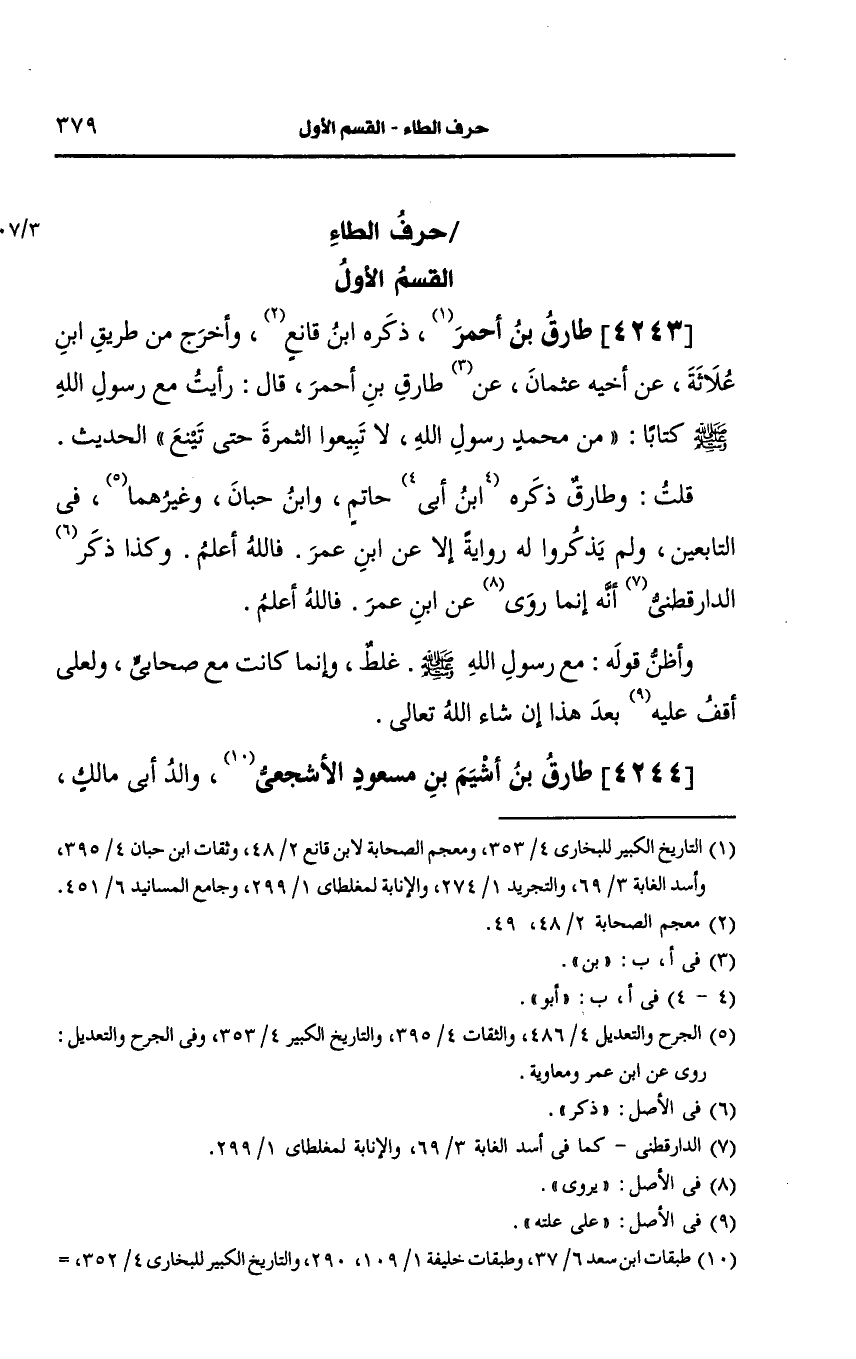 حرف الطاء - القسم الأول ٣٧٩
/حرفُ الطاءِ
٠٧/٣
القسمُ الأولُ
[٤٢٤٣] طارقُ بنُ أحمرَ(١)، ذكَره ابنُ قانعٍ(٢)، وأخرَج من طريقِ ابنِ
عُلَاثَةَ، عن أخيه عثمانَ، عن(٣) طارقِ بنِ أحمرَ، قال: رأيتُ مع رسولِ اللهِ
ﷺ كتابًا: «من محمدٍ رسولِ اللهِ، لا تَبِيعوا الثمرةَ حتى تَيْنعَ» الحديث.
قلتُ: وطارقٌ ذكَره (٤ابنُ أبى٤) حاتمٍ، وابنُ حبانَ، وغيرُهما(٥)، فى
التابعين، ولم يَذكُروا له روايةً إلا عن ابنِ عمرَ. فاللهُ أعلمُ. وكذا ذكَر(٦)
الدارقطنىُّ(٧) أنَّه إنما روَى(٨) عن ابنِ عمرَ. فاللهُ أعلمُ.
وأظنُّ قولَه: مع رسولِ اللهِ ﷺ. غلطٌ، وإنما كانت مع صحابىٍّ، ولعلى
أقفُ عليه(٩) بعدَ هذا إن شاء اللهُ تعالى.
[٤٢٤٤] طارقُ بنُ أشْيَمَ بنِ مسعودٍ الأشجعىُّ(١٠)، والدُ أبى مالكٍ،
(١) التاريخ الكبير للبخارى ٤/ ٣٥٣، ومعجم الصحابة لابن قانع ٢/ ٤٨، وثقات ابن حبان ٤/ ٣٩٥،
وأسد الغابة ٣/ ٦٩، والتجريد ١/ ٢٧٤، والإنابة لمغلطاى ١/ ٢٩٩، وجامع المسانيد ٦/ ٤٥١.
(٢) معجم الصحابة ٢/ ٤٨، ٤٩.
(٣) فى أ، ب: «بن».
(٤ - ٤) فى أ، ب: «أبو».
(٥) الجرح والتعديل ٤/ ٤٨٦، والثقات ٤/ ٣٩٥، والتاريخ الكبير ٤/ ٣٥٣، وفى الجرح والتعديل:
روى عن ابن عمر ومعاوية.
(٦) فى الأصل: «ذكر».
(٧) الدارقطنى - كما فى أسد الغابة ٣/ ٦٩، والإنابة لمغلطاى ١/ ٢٩٩.
(٨) فى الأصل: «يروى».
(٩) فى الأصل: «على علته».
(١٠) طبقات ابن سعد ٦/ ٣٧، وطبقات خليفة ١/ ١٠٩، ٢٩٠، والتاريخ الكبير للبخارى ٤/ ٣٥٢، =